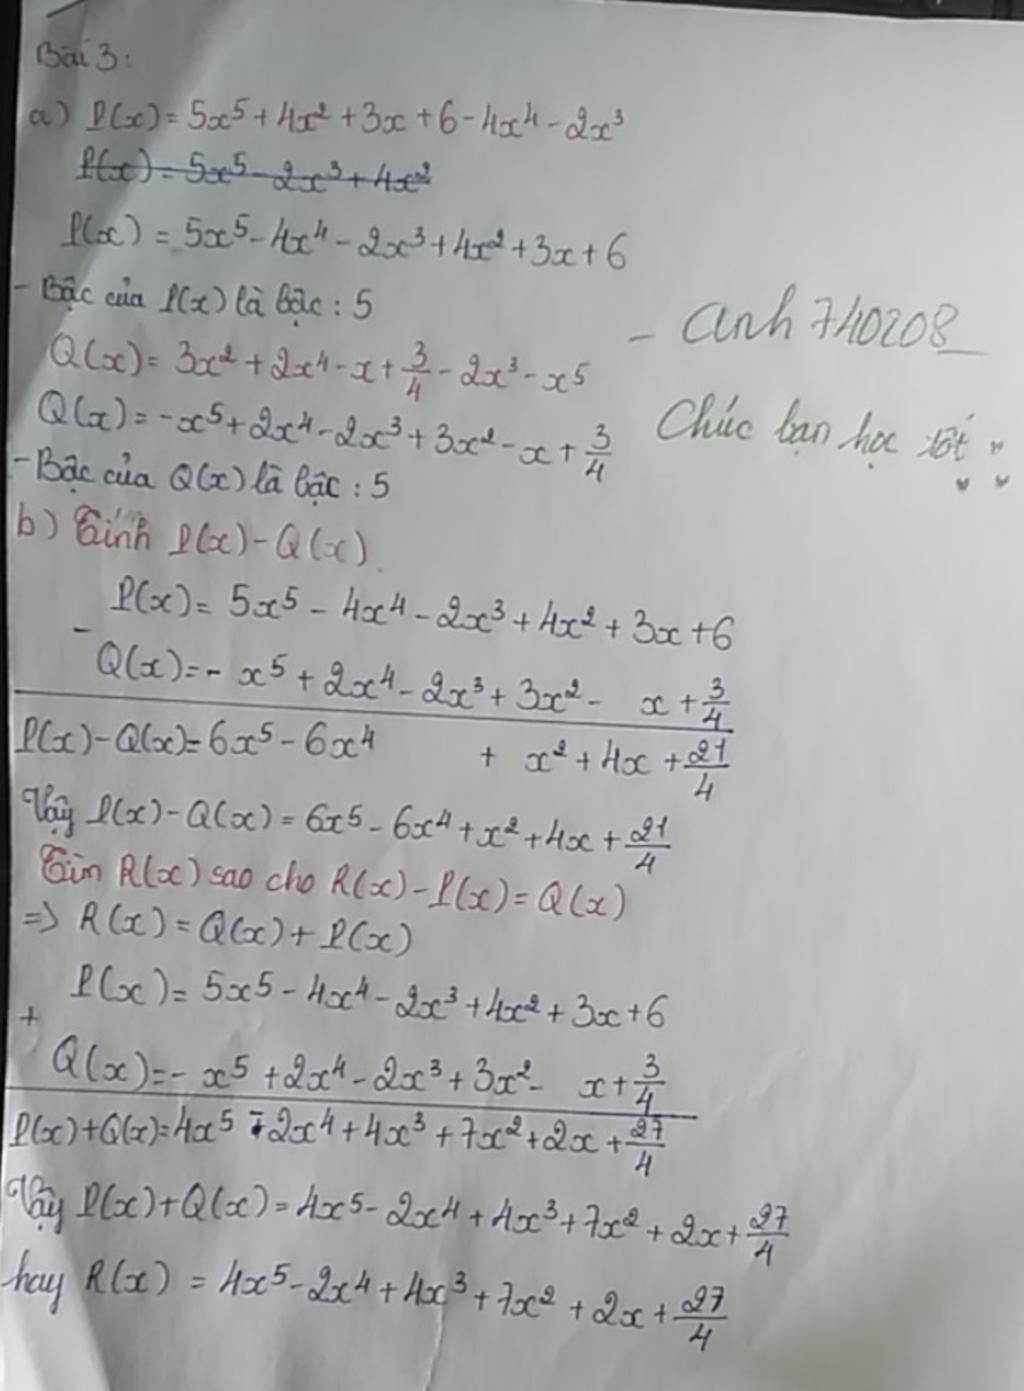 Bài 3:
a) P(x) = 5x⁵ + 4x² + 3x + 6 - 4x⁴ - 2x³
P(x) = 5x⁵ - 2x³ + 4x²
P(x) = 5x⁵ - 4x⁴ - 2x³ + 4x² + 3x + 6
- Bậc của P(x) là bậc : 5
Q(x) = 3x² + 2x⁴ - x + 3/4 - 2x³ - x⁵
Q(x) = -x⁵ + 2x⁴ - 2x³ + 3x² - x + 3/4
- Bậc của Q(x) là bậc : 5
- anh 740208
Chúc bạn học tốt
b) Tính P(x) - Q(x)
P(x) = 5x⁵ - 4x⁴ - 2x³ + 4x² + 3x + 6
-
Q(x) = - x⁵ + 2x⁴ - 2x³ + 3x² - x + 3/4
P(x) - Q(x) = 6x⁵ - 6x⁴ + x² + 4x + 21/4
Vậy P(x) - Q(x) = 6x⁵ - 6x⁴ + x² + 4x + 21/4
Tìm R(x) sao cho R(x) - P(x) = Q(x)
=> R(x) = Q(x) + P(x)
P(x) = 5x⁵ - 4x⁴ - 2x³ + 4x² + 3x + 6
+
Q(x) = - x⁵ + 2x⁴ - 2x³ + 3x² - x + 3/4
P(x) + Q(x) = 4x⁵ - 2x⁴ + 4x³ + 7x² + 2x + 27/4
Vậy P(x) + Q(x) = 4x⁵ - 2x⁴ + 4x³ + 7x² + 2x + 27/4
hay R(x) = 4x⁵ - 2x⁴ + 4x³ + 7x² + 2x + 27/4